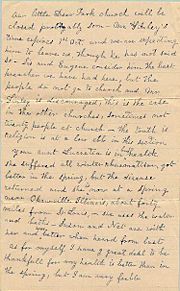 our little Deer Park church will be
closed probably soon - Mr Finley's
time expires 1st Oct. and we are expecting
him to leave us though he has not said
so - Sis and Eugene consider him the best
preacher we have had here, but the
people do not go to church and Mr
Finley is discouraged; this is the case
in the other churches, sometimes not
twenty people at church - the truth is
religion is at a low ebb in this section
Your aunt Lucretia is in health
She suffered all winter Rheumatism, got
better in the spring, but the disease
returned and she now at a spring
near Okawville Illinois, about forty
miles from St Louis - she uses the water
and baths. Susan and Nat are with
her and better when heard from last
as for myself I have a great deal to be
thankful for my health is better than in
the spring, but I am very feeble